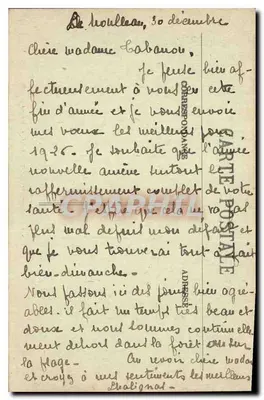 Le Moulleau, 30 décembre
Chère madame Cabanon,
Je pense bien af-
fectueusement à vous en cette
fin d'année et je vous envoie
mes vœux les meilleurs pour
1926. Je souhaite que l'année
nouvelle amène surtout le
raffermissement complet de votre
santé
plus mal depuis mon départ et
que je vous trouverai tout à fait
bien dimanche.
Nous passons ici des jours bien agré-
ables. il fait un temps très beau et
doux et nous sommes continuelle-
ment dehors dans la forêt ou sur
la plage. Au revoir chère madame
et croyez à mes sentiments les meilleurs
CARTE POSTALE
CORRESPONDANCE
ADRESSE
CPAPHIL